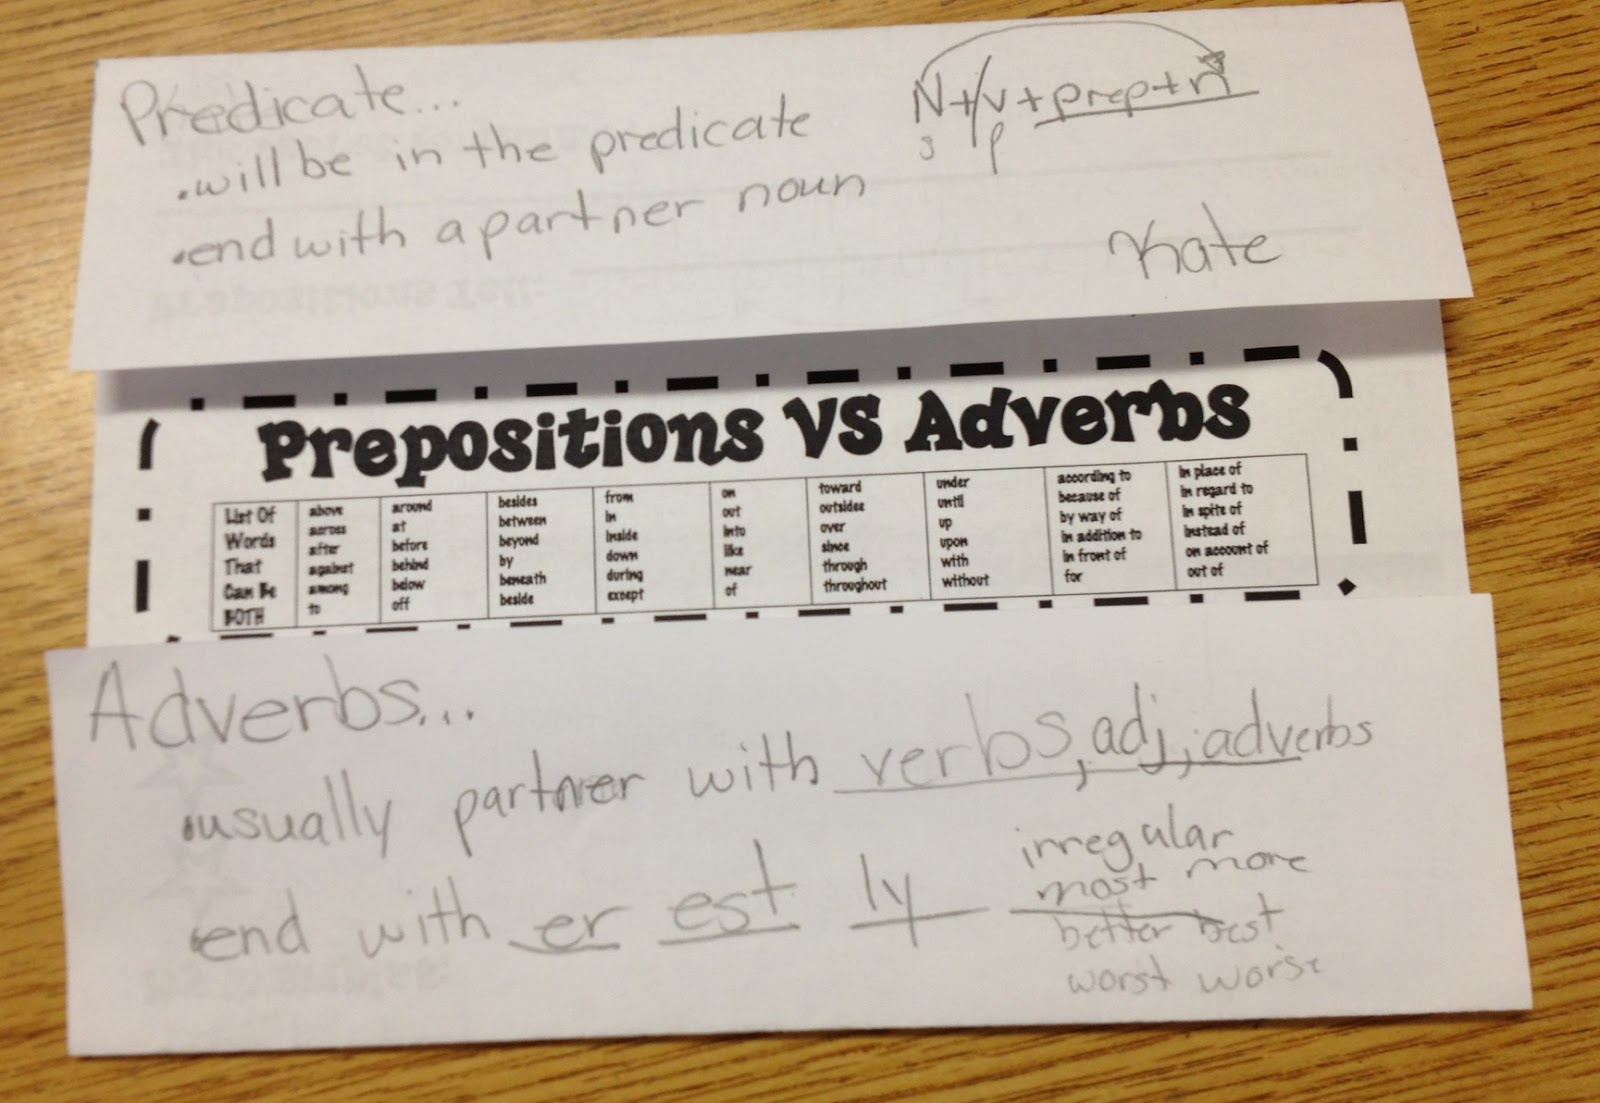 Predicate...
.will be in the predicate
.end with a partner noun
N+/v+prep+n
s p
Kate
Prepositions VS Adverbs
List Of Words That Can Be BOTH
above
across
after
against
among
to
around
at
before
behind
below
off
besides
between
beyond
by
beneath
beside
from
in
inside
down
during
except
on
out
into
like
near
of
toward
outside
over
since
through
throughout
under
until
up
upon
with
without
according to
because of
by way of
in addition to
in front of
for
in place of
in regard to
in spite of
instead of
on account of
out of
Adverbs...
.usually partner with verbs, adj, adverbs
.end with er est ly
irregular
most more
better best
worst worse